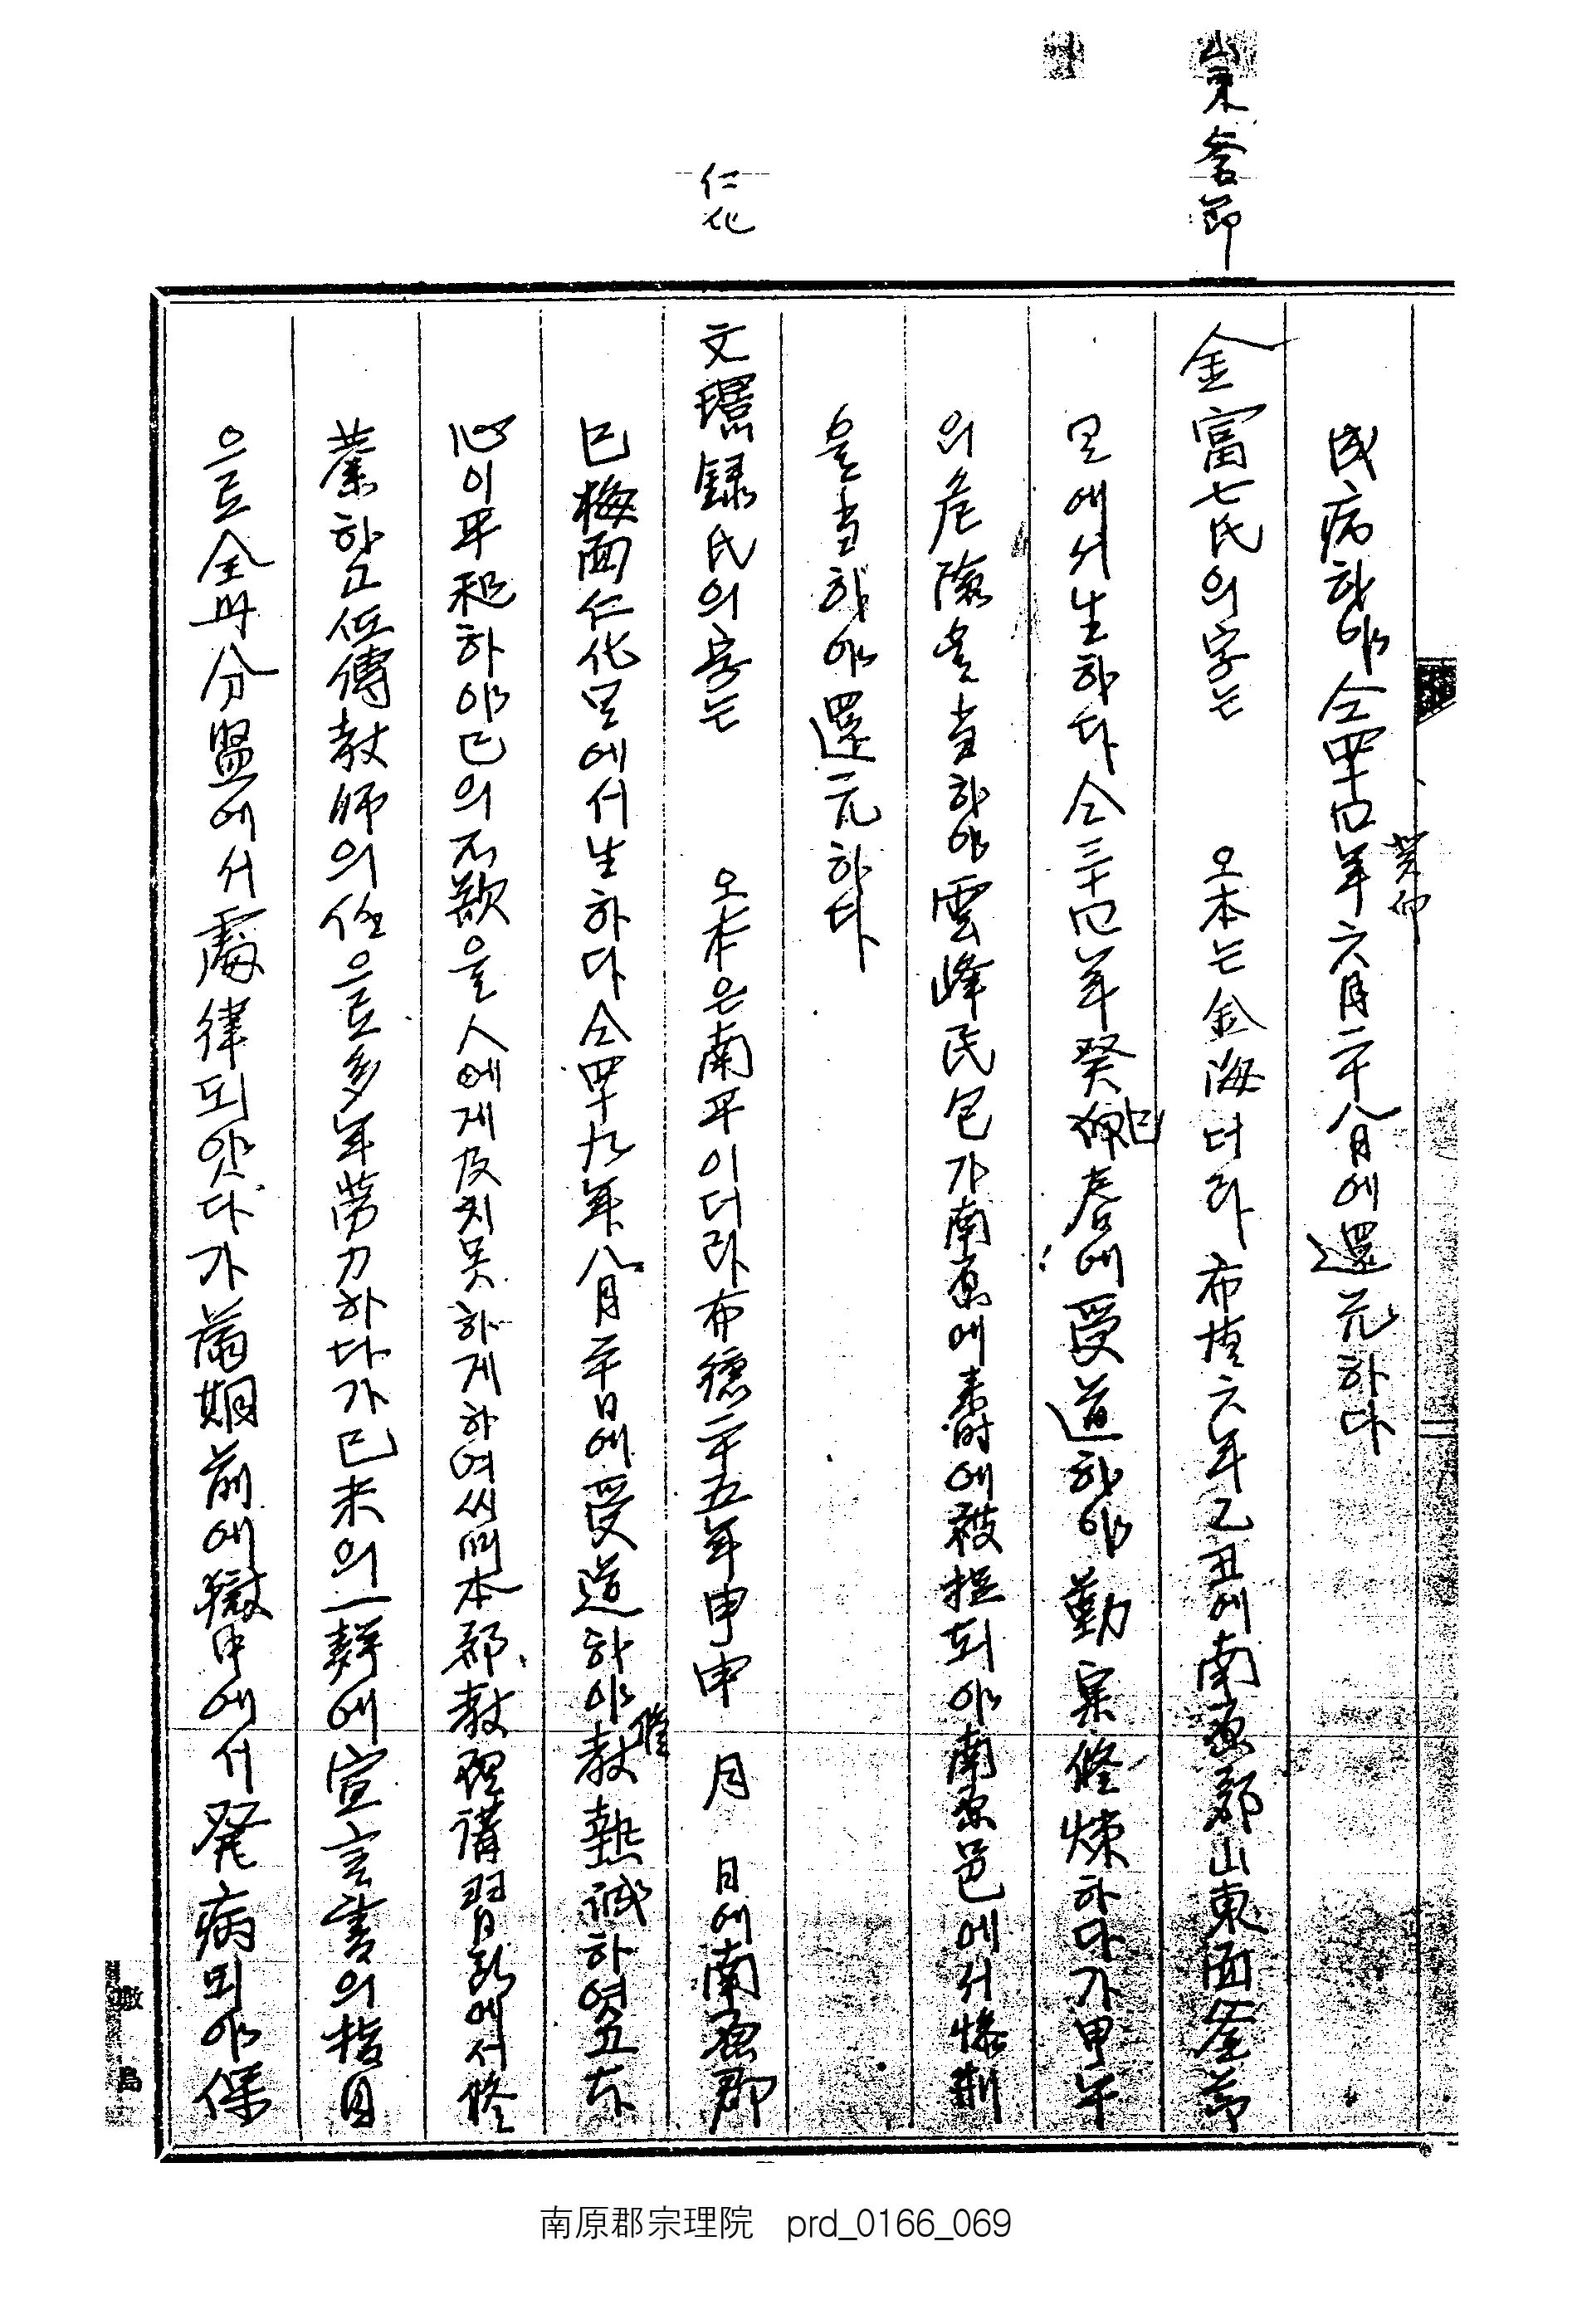 山東 奎節
仁化
成病하야仝四十四年六月二十八日에還元하다
癸卯
金富七氏의字는 오本는金海더라布德六年乙丑에南原郡山東面奎節
里에서生하다仝三十四年癸巳春에受道하야勤實修煉하다가甲午
의危險을当하야雲峰民包가南原에來時에被捉되야南原邑에서慘刑
을当하야還元하다
文璟錄氏의字는 오本은南平이더라布德二十五年甲申 月 日에南原郡
巳梅面仁化里에서生하다仝四十九年八月二十日에受道하야敎 熱誠하엿고左
心이平和하야己의不歡을人에게及치못하게하여씨며本郡敎理講習所에서修
業하고巡傳敎師의任으로多年勞力하다가己未의一輯에宣言書의指目
으로全州分監에서處律되얏다가滿期前에獄中에서発病되야保
南原郡宗理院 prd_0166_069